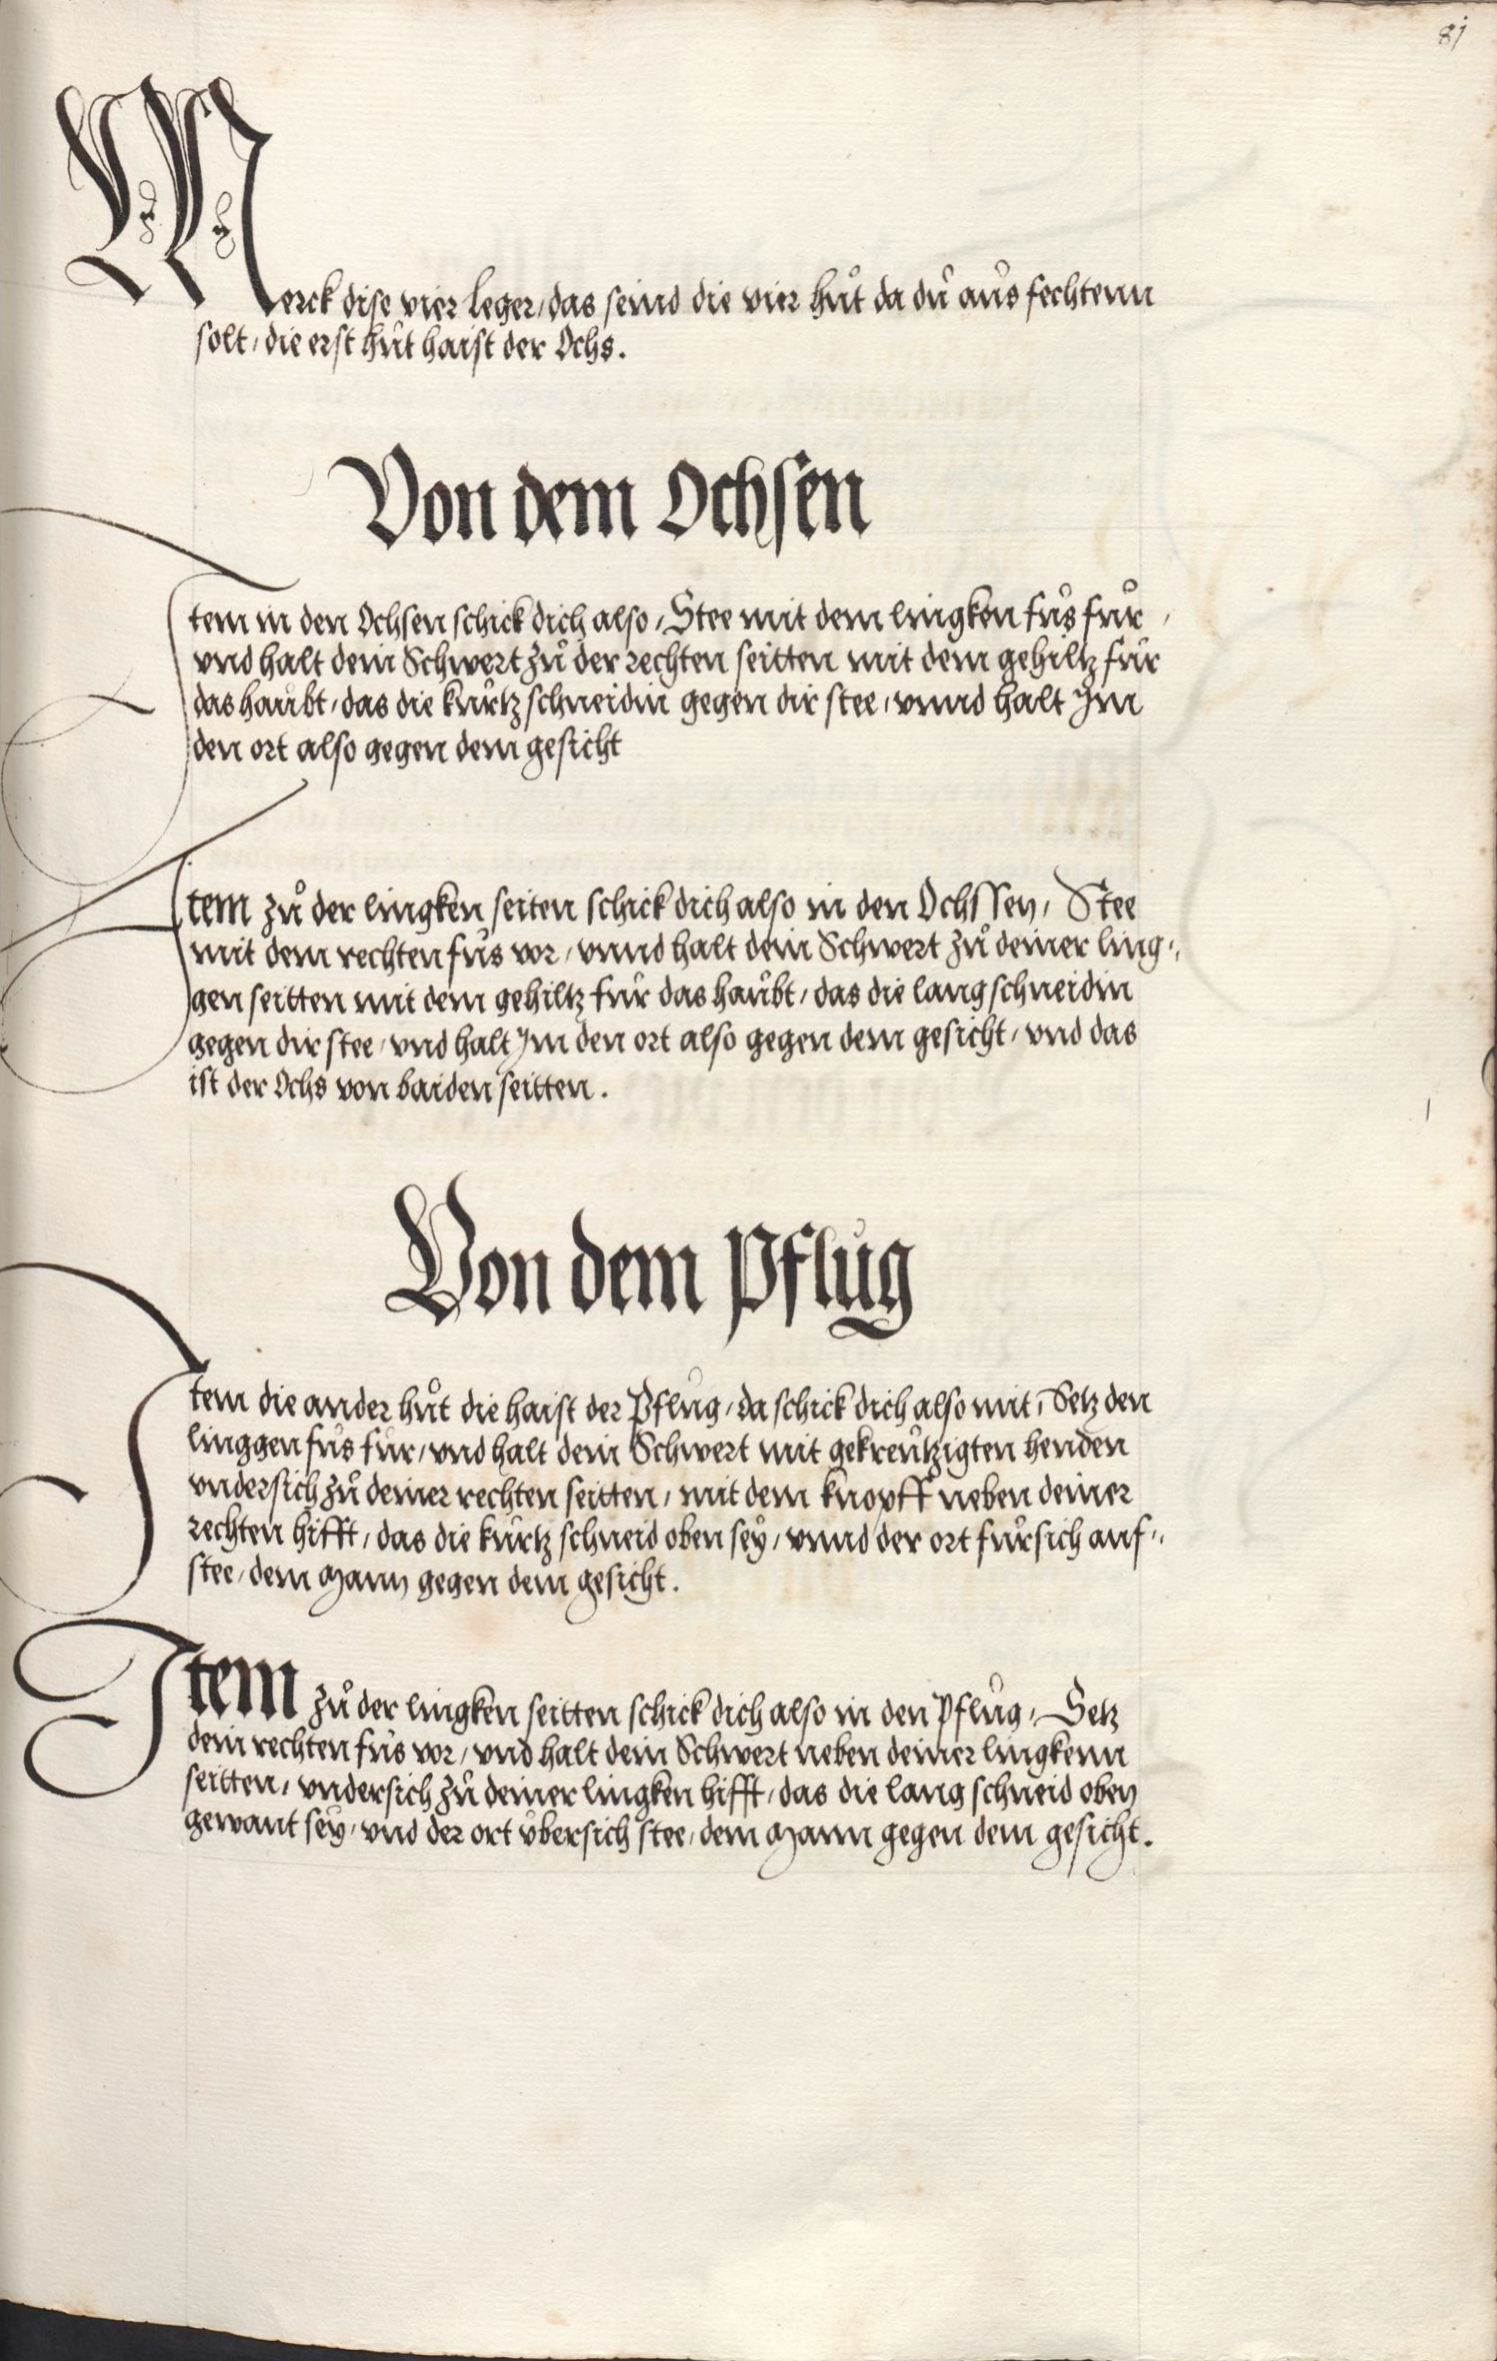 81
Merck dise vier leger, das seind die vier hůt da dů aůs fechtenn
solt, die erst hůt haist der Ochs.
Von dem Ochsen
Item in den Ochsen schick dich also, Stee mit dem lingken fůs fůr,
vnd halt dein Schwert zů der rechten seitten mit dem gehiltz fůr
das haůbt, das die kůrtz schneidin gegen dir stee, vnnd halt Im
den ort also gegen dem gesicht
Item zů der lingken seiten schick dich also in den Ochssen, Stee
mit dem rechten fůs vor, vnnd halt dein Schwert zů deiner ling,,
gen seitten mit dem gehiltz fůr das haůbt, das die lang schneidin
gegen dir stee, vnd halt Im den ort also gegen dem gesicht, vnd das
ist der Ochs von baiden seitten.
Von dem Pflůg
Item die ander hůt die haist der Pflůg, da schick dich also mit, Setz den
linggen fůs fůr, vnd halt dein Schwert mit gekreůtzigten henden
vndersich zů deiner rechten seitten, mit dem knopff neben deiner
rechten hifft, das die kůrtz schneid oben seÿ, vnnd der ort fůrsich auf,,
stee, dem Mann gegen dem gesicht.
Item zů der lingken seitten schick dich also in den Pflůg, Setz
dein rechten fůs vor, vnd halt dein Schwert neben deiner lingkenn
seitten, vndersich zů deiner lingken hifft, das die lang schneid oben
gewant seÿ, vnd der ort ůbersich stee, dem Mann gegen dem gesicht.